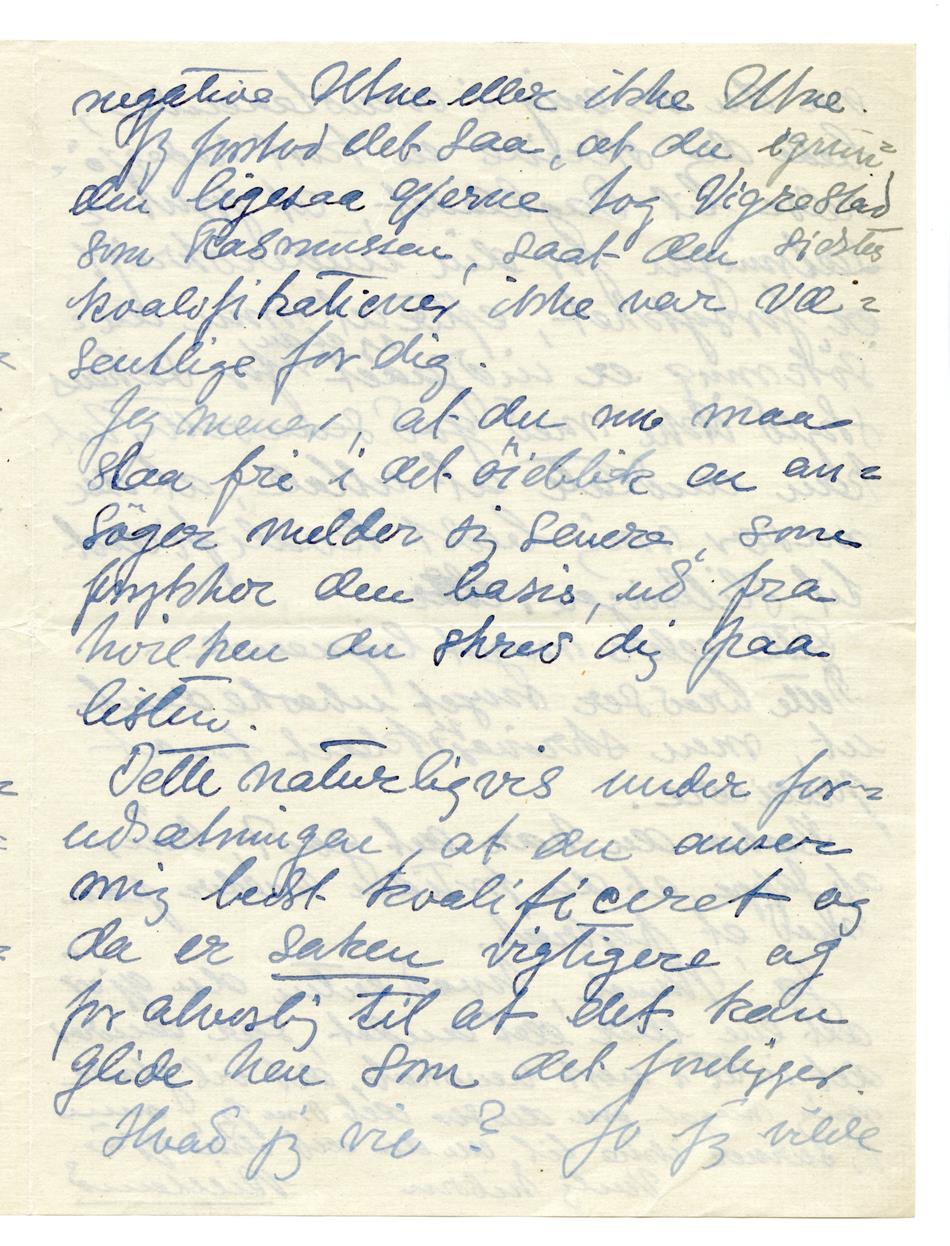 negative Utne eller ikke Utne.
Jeg forstod det saa, at du igrun=
den ligesaa gjerne tog Vigrestad
som Rasmussen, saat den sidstes
kvalifikationer ikke var væ=
sentlige for dig.
Jeg mener, at du nu maa
staa fri i det öieblik en an=
söger melder sig senere, som
forrykker den basis, ud fra
hvilken du skrev dig paa
listen.
Dette naturligvis under for=
udsætningen, at du anser
mig bedst kvalificeret og
da er saken vigtigere og
for alvorslig til at det kan
glide hen som det foreligger.
Hvad jeg vil? Jo jeg vilde